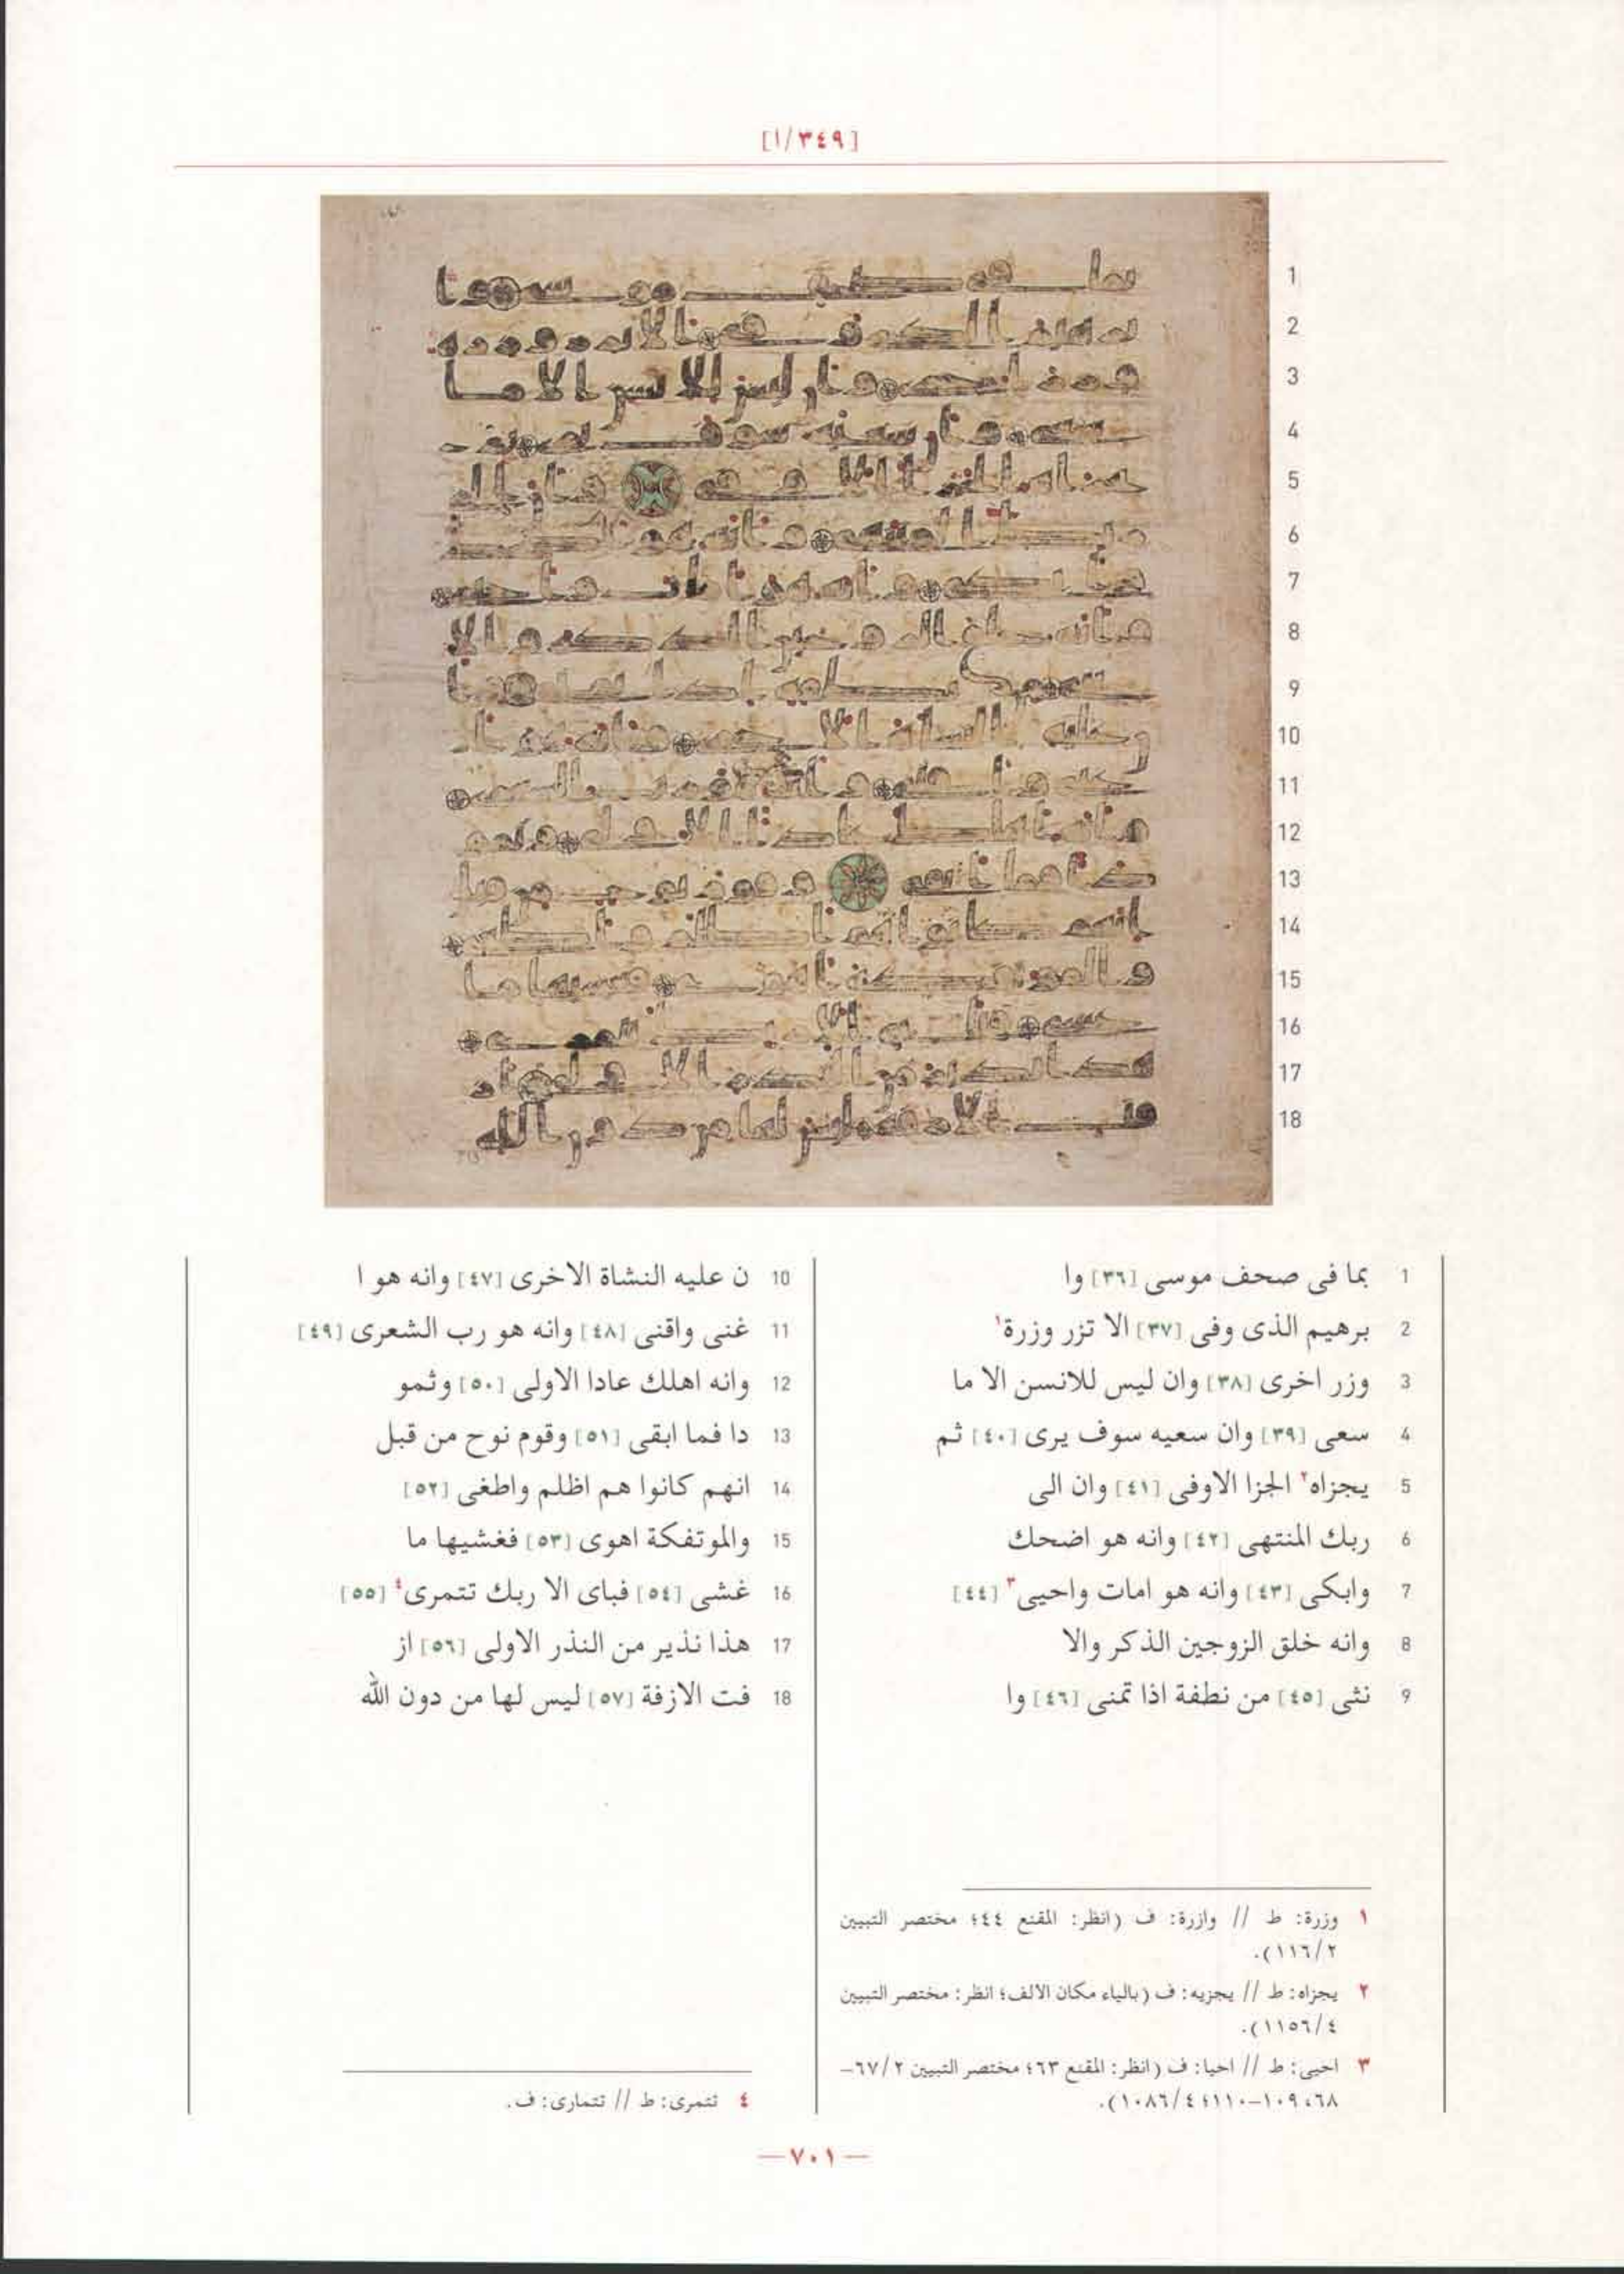 [٣٤٩/ا]
1 بما فى صحف موسى [٣٦] وا
2 برهيم الذى وفى [٣٧] الا تزر وزرة١
3 وزر اخرى [٣٨] وان ليس للانسن الا ما
4 سعى [٣٩] وان سعيه سوف يرى [٤٠] ثم
5 يجزاه٢ الجزا الاوفى [٤١] وان الى
6 ربك المنتهى [٤٢] وانه هو اضحك
7 وابكى [٤٣] وانه هو امات واحيى٣ [٤٤]
8 وانه خلق الزوجين الذكر والا
9 نثى [٤٥] من نطفة اذا تمنى [٤٦] وا
10 ن عليه النشاة الاخرى [٤٧] وانه هو ا
11 غنى واقنى [٤٨] وانه هو رب الشعرى [٤٩]
12 وانه اهلك عادا الاولى [٥٠] وثمو
13 دا فما ابقى [٥١] وقوم نوح من قبل
14 انهم كانوا هم اظلم واطغى [٥٢]
15 والموتفكة اهوى [٥٣] فغشيها ما
16 غشى [٥٤] فباى الا ربك تتمرى٤ [٥٥]
17 هذا نذير من النذر الاولى [٥٦] از
18 فت الازفة [٥٧] ليس لها من دون الله
١ وزرة: ط // وازرة: ف (انظر: المقنع ٤٤؛ مختصر التبيين
١١٦/٢).
٢ يجزاه: ط // يجزيه: ف (بالياء مكان الالف؛ انظر: مختصر التبيين
١١٥٦/٤).
٣ احيى: ط // احيا: ف (انظر: المقنع ٦٣؛ مختصر التبيين ٦٧/٢–
٦٨، ١٠٩–١١٠؛ ١٠٨٦/٤).
٤ تتمرى: ط // تتمارى: ف.
— ٧٠١ —